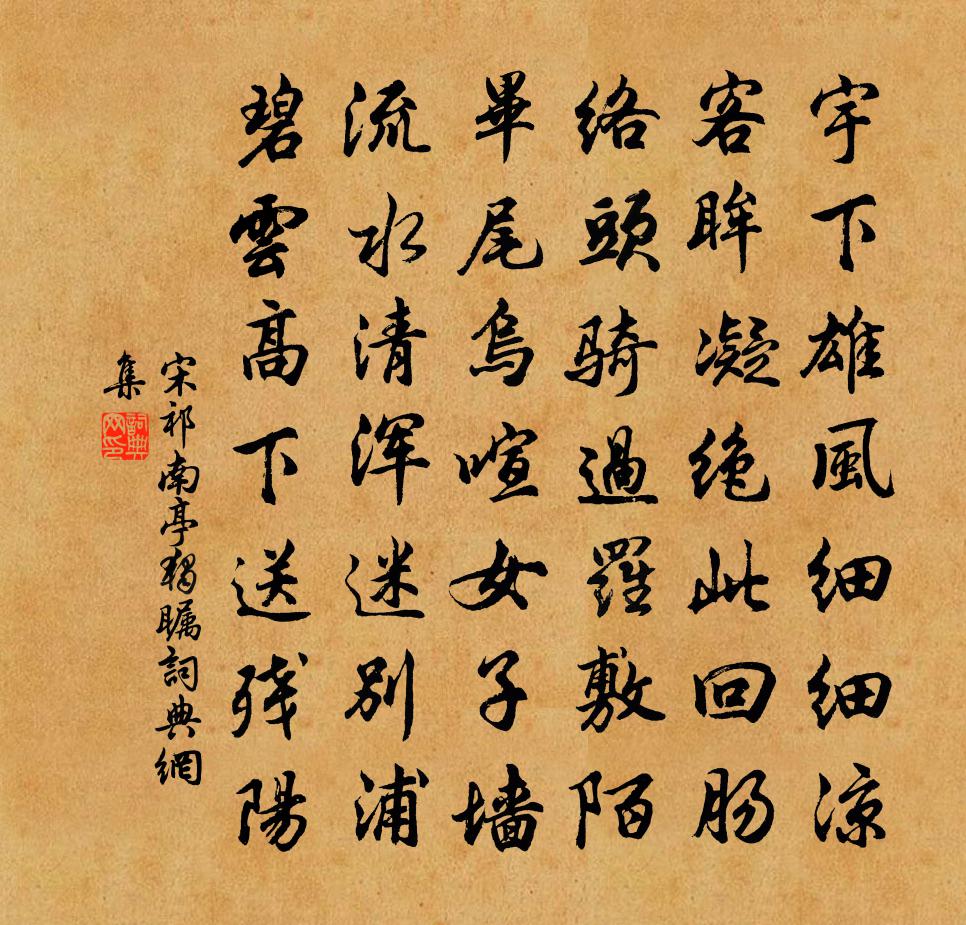 宇下雄風細細涼
客眸凝絶此回腸
絡頭騎過羅敷陌
畢尾烏喧女子墻
流水清渾迷別浦
碧雲高下送残陽
宋祁南亭獨矚詞典網
集
詞典网印